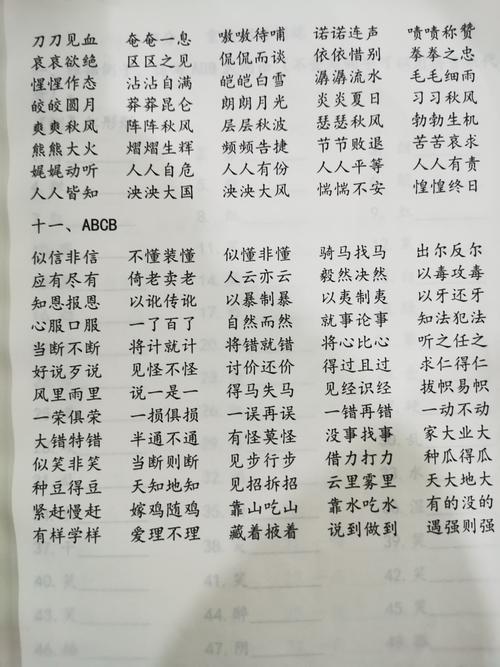 刀刀见血 奄奄一息 嗷嗷待哺 诺诺连声 啧啧称赞
哀哀欲绝 区区之见 侃侃而谈 依依惜别 拳拳之忠
惺惺作态 沾沾自满 皑皑白雪 潺潺流水 毛毛细雨
皎皎圆月 莽莽昆仑 朗朗月光 炎炎夏日 习习秋风
爽爽秋风 阵阵秋风 层层秋波 瑟瑟秋风 勃勃生机
熊熊大火 熠熠生辉 频频告捷 节节败退 苦苦哀求
娓娓动听 人人自危 人人有份 人人平等 人人有责
人人皆知 泱泱大国 泱泱大风 惴惴不安 惶惶终日
十一、ABCB
似信非信 不懂装懂 似懂非懂 骑马找马 出尔反尔
应有尽有 倚老卖老 人云亦云 毅然决然 以毒攻毒
知恩报恩 以讹传讹 以暴制暴 以夷制夷 以牙还牙
心服口服 一了百了 自然而然 就事论事 知法犯法
当断不断 将计就计 将错就错 将心比心 听之任之
好说歹说 见怪不怪 讨价还价 得过且过 求仁得仁
风里雨里 说一是一 得马失马 见经识经 拔帜易帜
一荣俱荣 一损俱损 一误再误 一错再错 一动不动
大错特错 半通不通 有怪莫怪 没事找事 家大业大
似笑非笑 当断则断 见步行步 借力打力 种瓜得瓜
种豆得豆 天知地知 见招拆招 云里雾里 天大地大
紧赶慢赶 嫁鸡随鸡 靠山吃山 靠水吃水 有的没的
有样学样 爱理不理 藏着掖着 说到做到 遇强则强